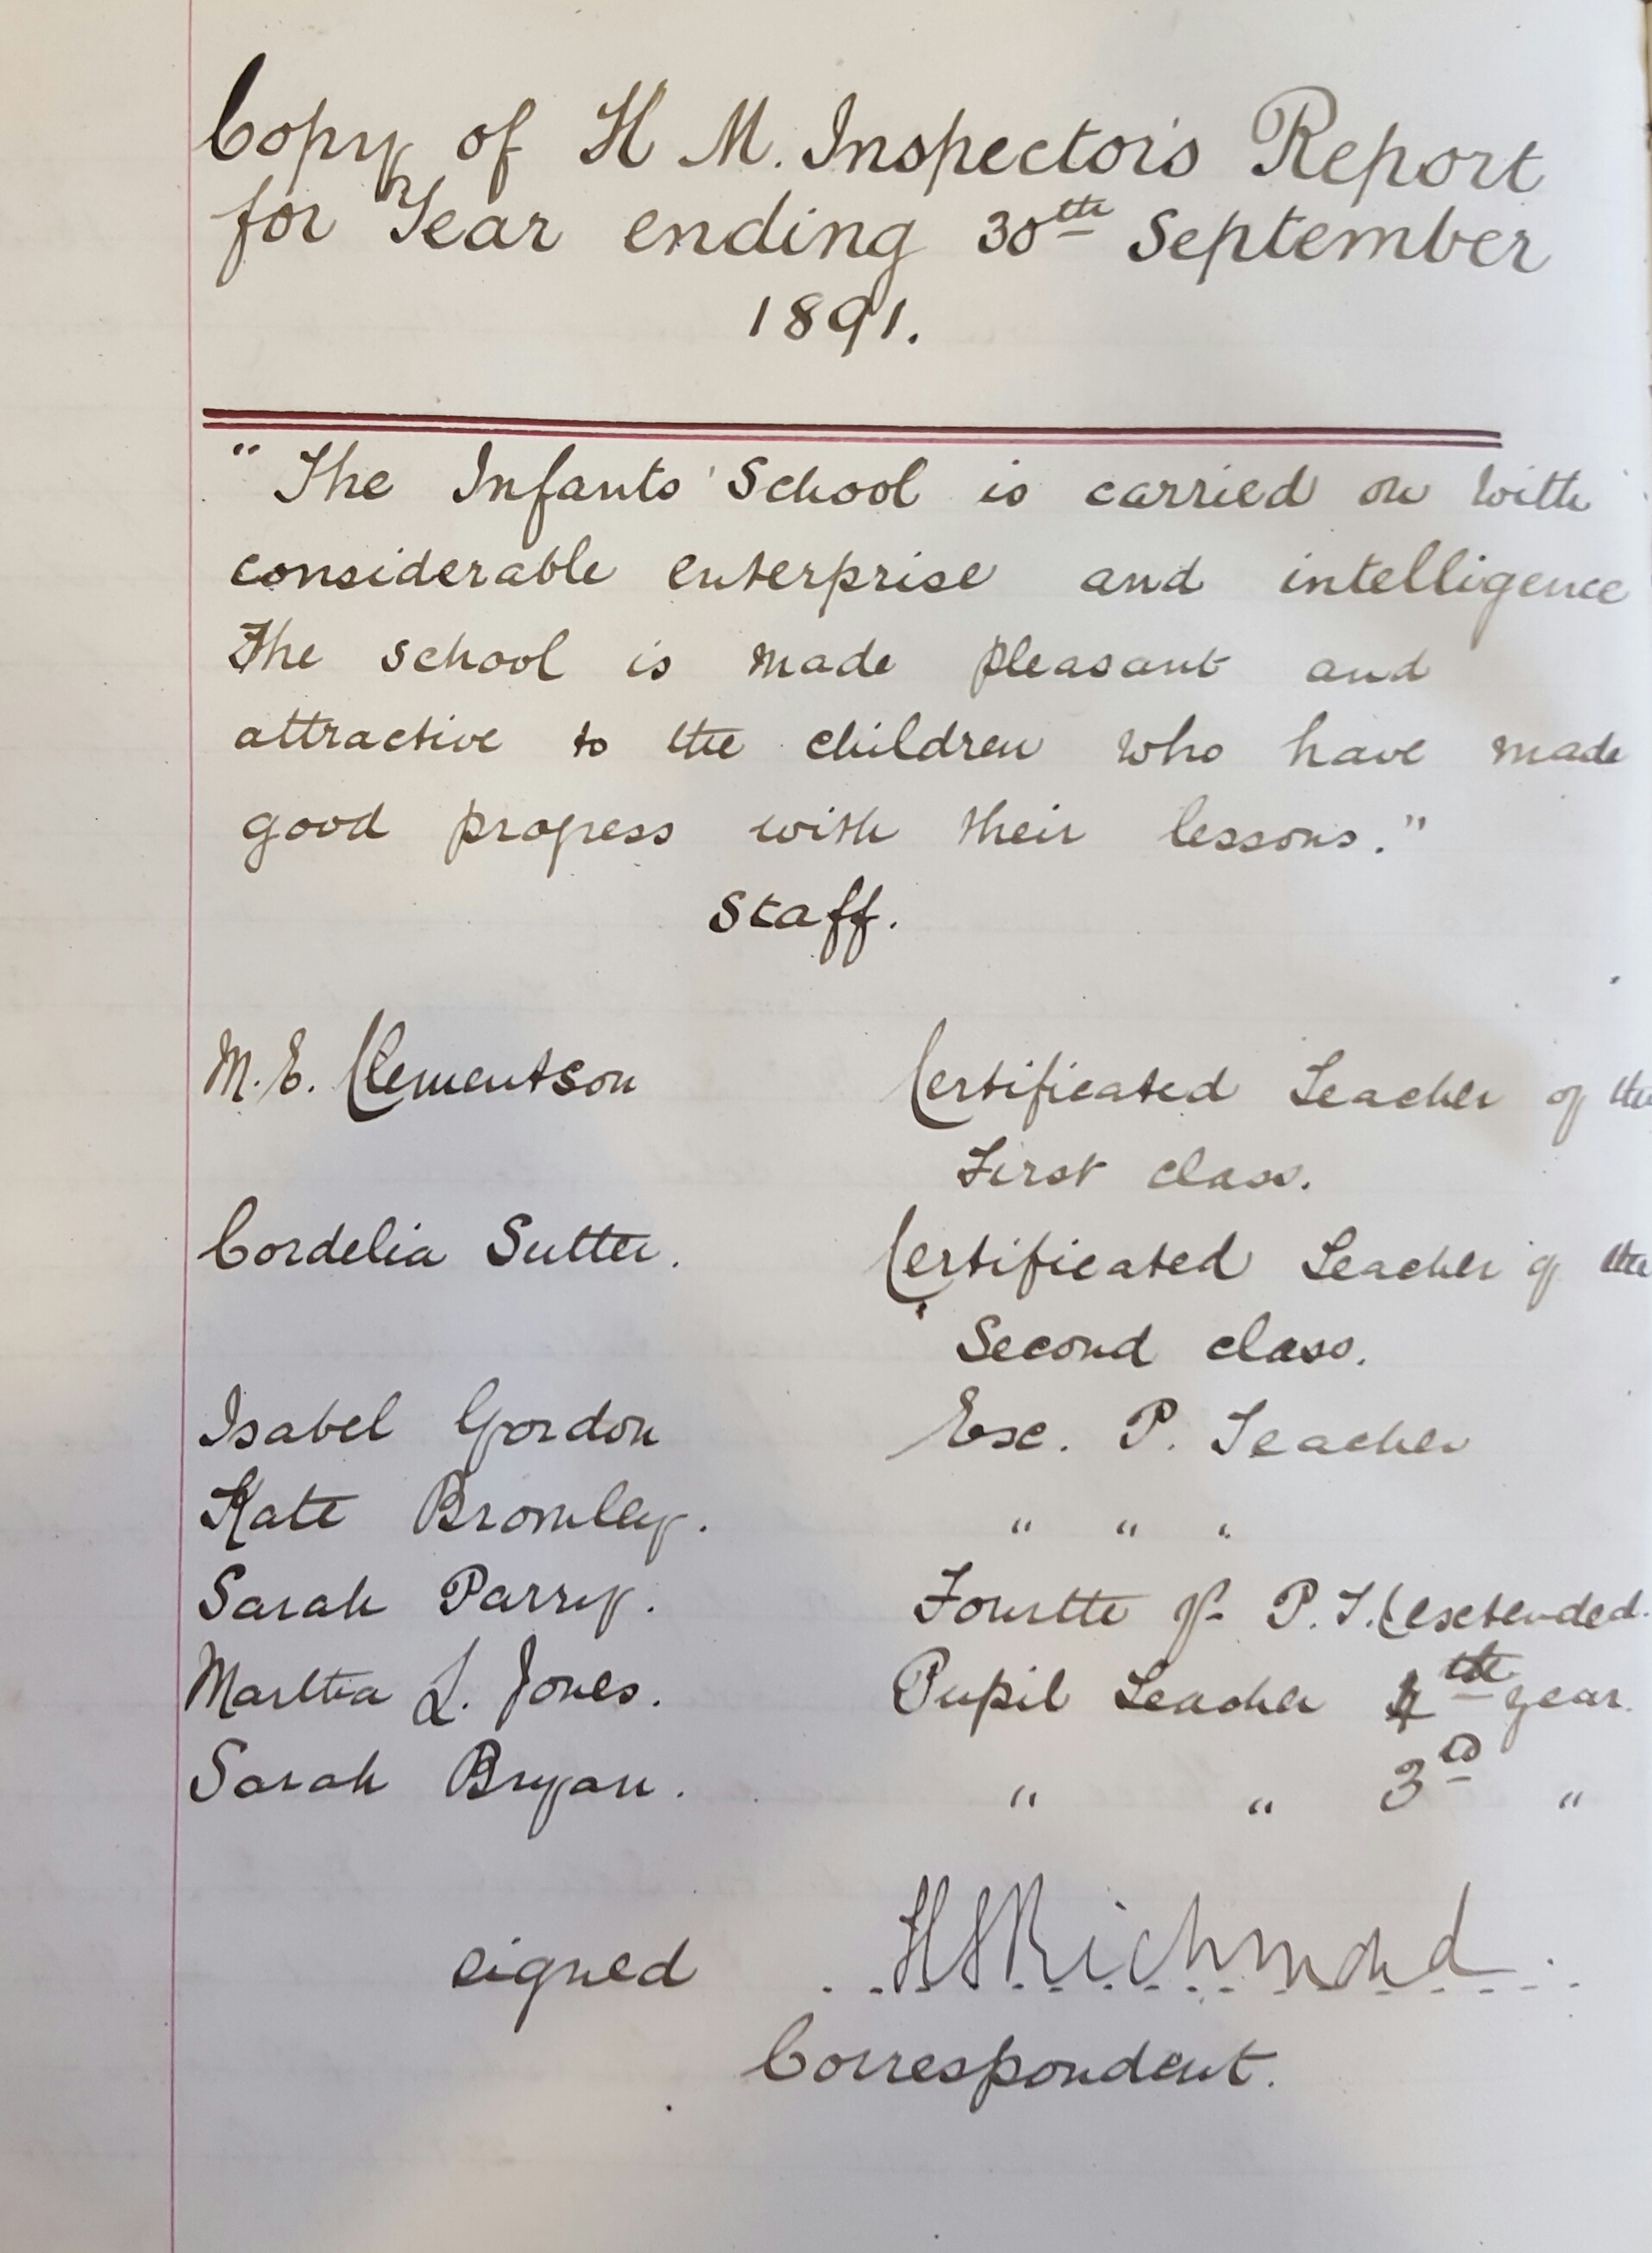 Copy of H M. Inspector's Report
for Year ending 30th September
1891.
"The Infants' School is carried on with
considerable enterprise and intelligence
The school is made pleasant and
attractive to the children who have made
good progress with their lessons."
Staff.
M. E. Clementson Certificated Teacher of the
First class.
Cordelia Sutter. Certificated Teacher of the
Second class.
Isabel Gordon Exc. P. Teacher
Kate Bromley. " " "
Sarah Parry. Fourth yr P. T. (extended.
Martha L. Jones. Pupil Teacher 4th year.
Sarah Bryan. " " 3rd "
signed H S Richmond
Correspondent.